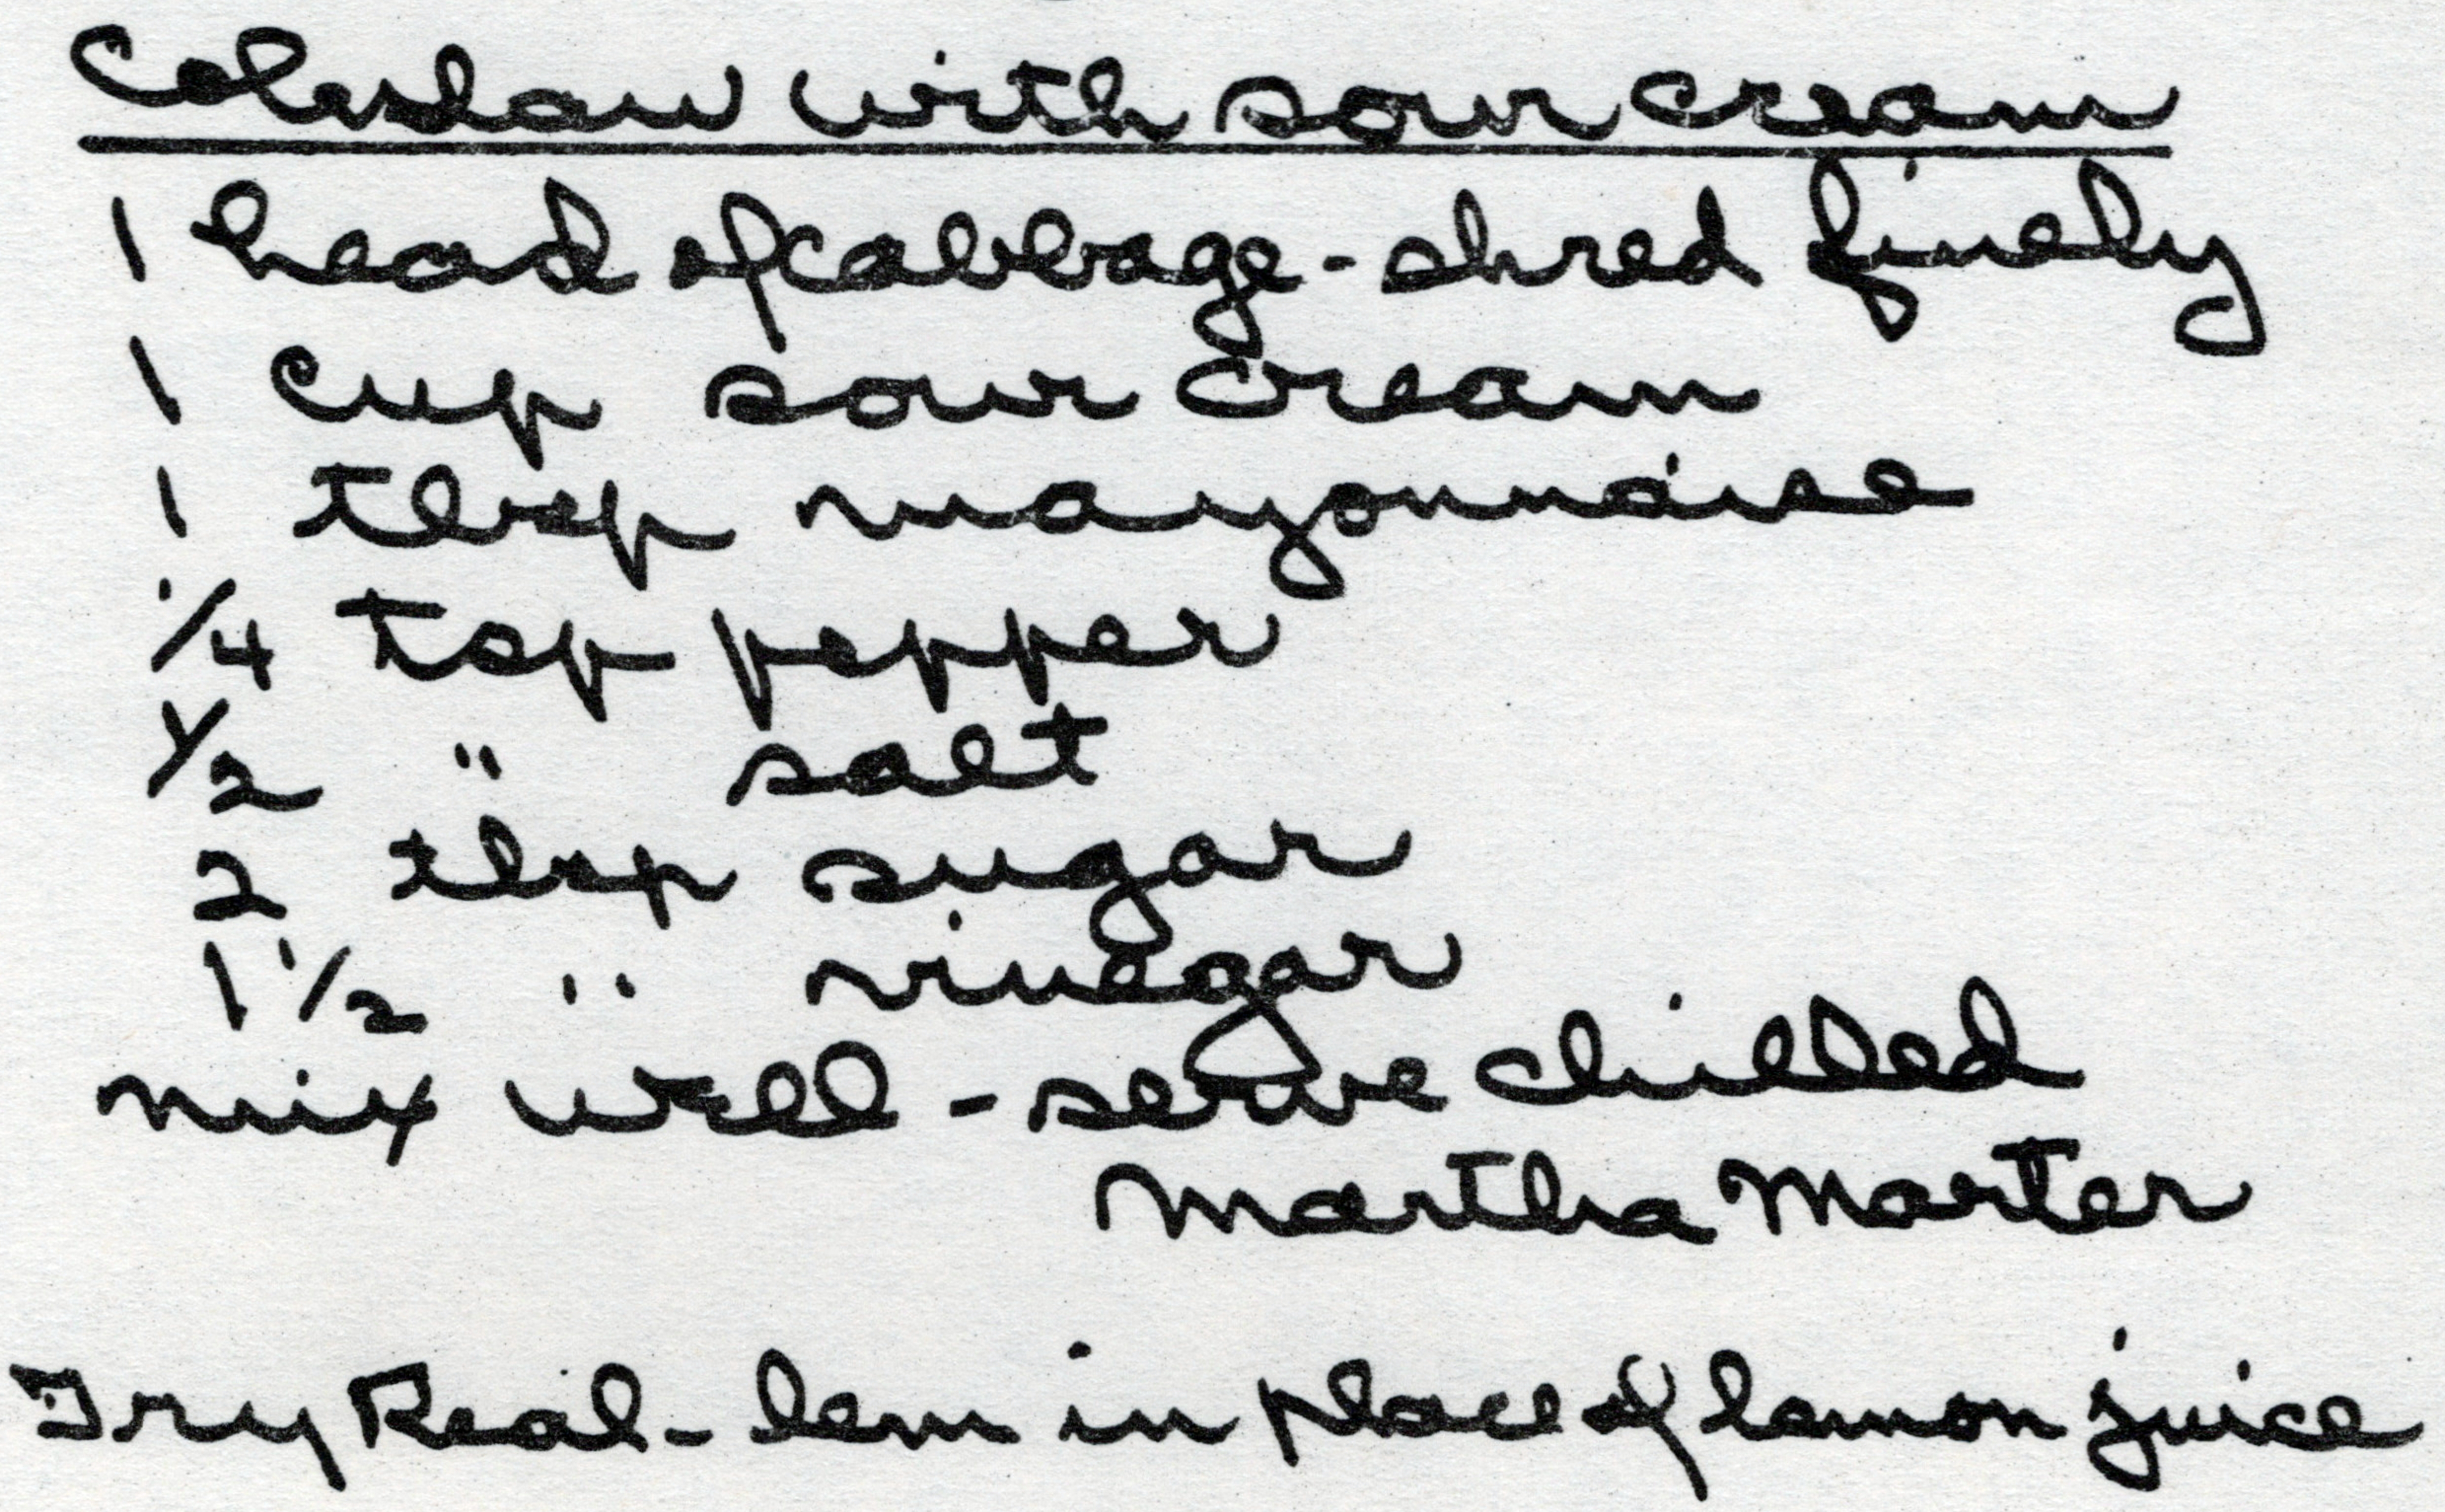 Coleslaw with sour cream
1 head of cabbage - shred finely
1 cup sour cream
1 tblsp mayonnaise
1/4 tsp pepper
1/2 " salt
2 tblsp sugar
1 1/2 " vinegar
mix well - serve chilled
Martha Marter
Try Real-lem in place of lemon juice